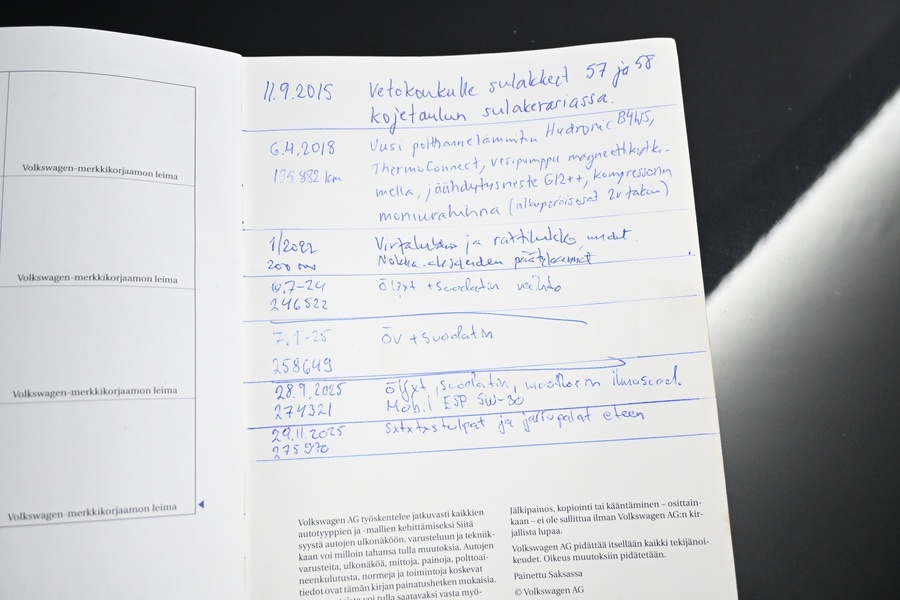 Volkswagen-merkkikorjaamon leima
Volkswagen-merkkikorjaamon leima
Volkswagen-merkkikorjaamon leima
Volkswagen-merkkikorjaamon leima
11.9.2015 Vetokoukulle sulakkeet 57 ja 58
kojetaulun sulakerasiassa.
6.4.2018 Uusi polttoainelämmitin Hydronic B4WS,
135 882 km ThermoConnect, vesipumppu magneettikytki-
mellä, jäähdytysneste G12++, kompressorin
moniurahihna (alkuperäisosat 2v takuu)
1/2022 Virtalukko ja rattilukko uudet.
200 Nokka-akseleiden
10.7-24 öljyt + suodatin vaihto
246522
7.1-25 öv + suodatin
258649
28.9.2025 öljyt, suodatin, ilmasuod.
274321 Mobil ESP 5W-30
29.11.2025 ja jarrupalat eteen
275970
Volkswagen AG työskentelee jatkuvasti kaikkien
autotyyppien ja -mallien kehittämiseksi Siitä
syystä autojen ulkonäköön, varusteluun ja tekniik-
kaan voi milloin tahansa tulla muutoksia. Autojen
varusteita, ulkonäköä, mittoja, painoja, polttoai-
neenkulutusta, normeja ja toimintoja koskevat
tiedot ovat tämän kirjan painatushetken mukaisia.
voi tulla saatavaksi vasta myö-
Jälkipainos, kopiointi tai kääntäminen – osittain-
kaan – ei ole sallittua ilman Volkswagen AG:n kir-
jallista lupaa.
Volkswagen AG pidättää itsellään kaikki tekijänoi-
keudet. Oikeus muutoksiin pidätetään.
Painettu Saksassa
© Volkswagen AG